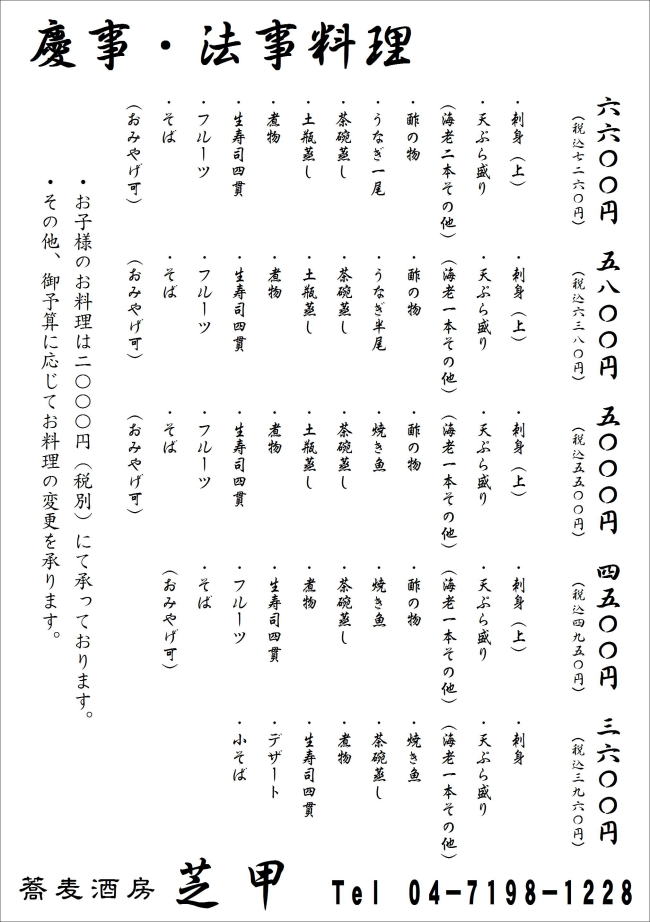 慶事・法事料理
六六〇〇円
(税込七二六〇円)
・刺身(上)
・天ぷら盛り
(海老二本その他)
・酢の物
・うなぎ一尾
・茶碗蒸し
・土瓶蒸し
・煮物
・生寿司四貫
・フルーツ
・そば
(おみやげ可)
五八〇〇円
(税込六三八〇円)
・刺身(上)
・天ぷら盛り
(海老一本その他)
・酢の物
・うなぎ半尾
・茶碗蒸し
・土瓶蒸し
・煮物
・生寿司四貫
・フルーツ
・そば
(おみやげ可)
五〇〇〇円
(税込五五〇〇円)
・刺身(上)
・天ぷら盛り
(海老一本その他)
・酢の物
・焼き魚
・茶碗蒸し
・土瓶蒸し
・煮物
・生寿司四貫
・フルーツ
・そば
(おみやげ可)
四五〇〇円
(税込四九五〇円)
・刺身(上)
・天ぷら盛り
(海老一本その他)
・酢の物
・焼き魚
・茶碗蒸し
・煮物
・生寿司四貫
・フルーツ
・そば
(おみやげ可)
三六〇〇円
(税込三九六〇円)
・刺身
・天ぷら盛り
(海老一本その他)
・焼き魚
・茶碗蒸し
・煮物
・生寿司四貫
・デザート
・小そば
・お子様のお料理は二〇〇〇円(税別)にて承っております。
・その他、御予算に応じてお料理の変更を承ります。
蕎麦酒房 芝甲 Tel 04-7198-1228